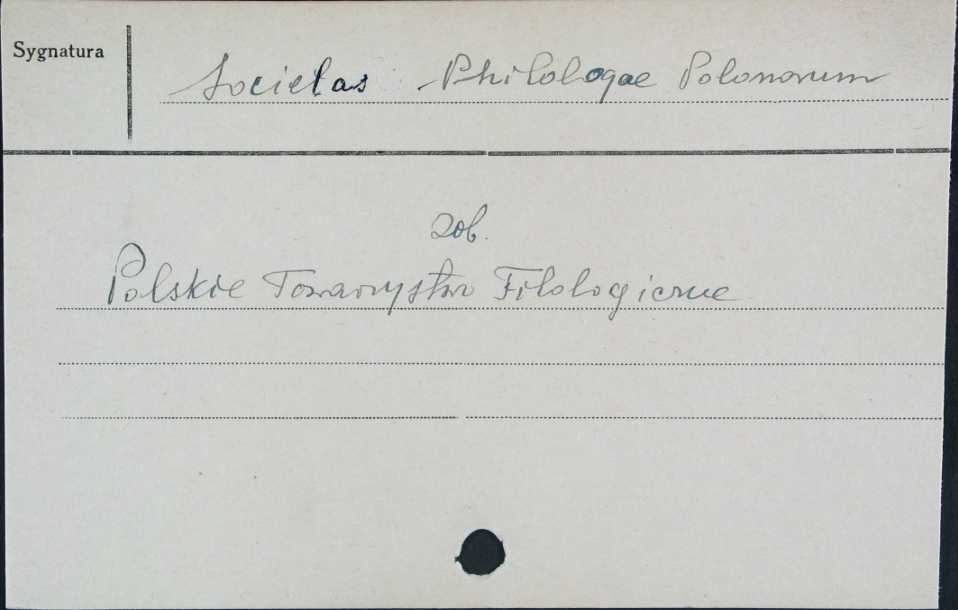 Sygnatura
Societas Philologae Polonorum
zob.
Polskie Towarzystwo Filologiczne